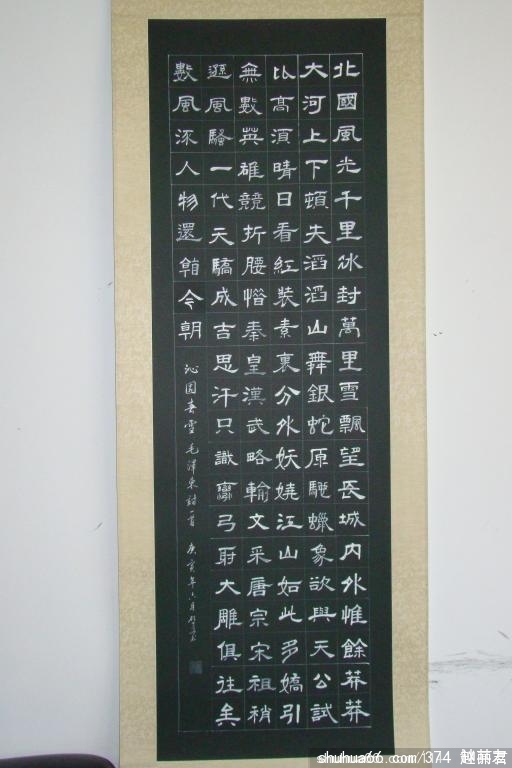 北國風光千里冰封萬里雪飄望長城內外惟餘莽莽
大河上下頓失滔滔山舞銀蛇原馳蠟象欲與天公試
比高須晴日看紅裝素裹分外妖嬈江山如此多嬌引
無數英雄競折腰惜秦皇漢武略輸文采唐宗宋祖稍
遜風騷一代天驕成吉思汗只識彎弓射大雕俱往矣
數風流人物還看今朝
沁園春雪毛澤東詩一首 庚寅年六月
shuhua66.com/374